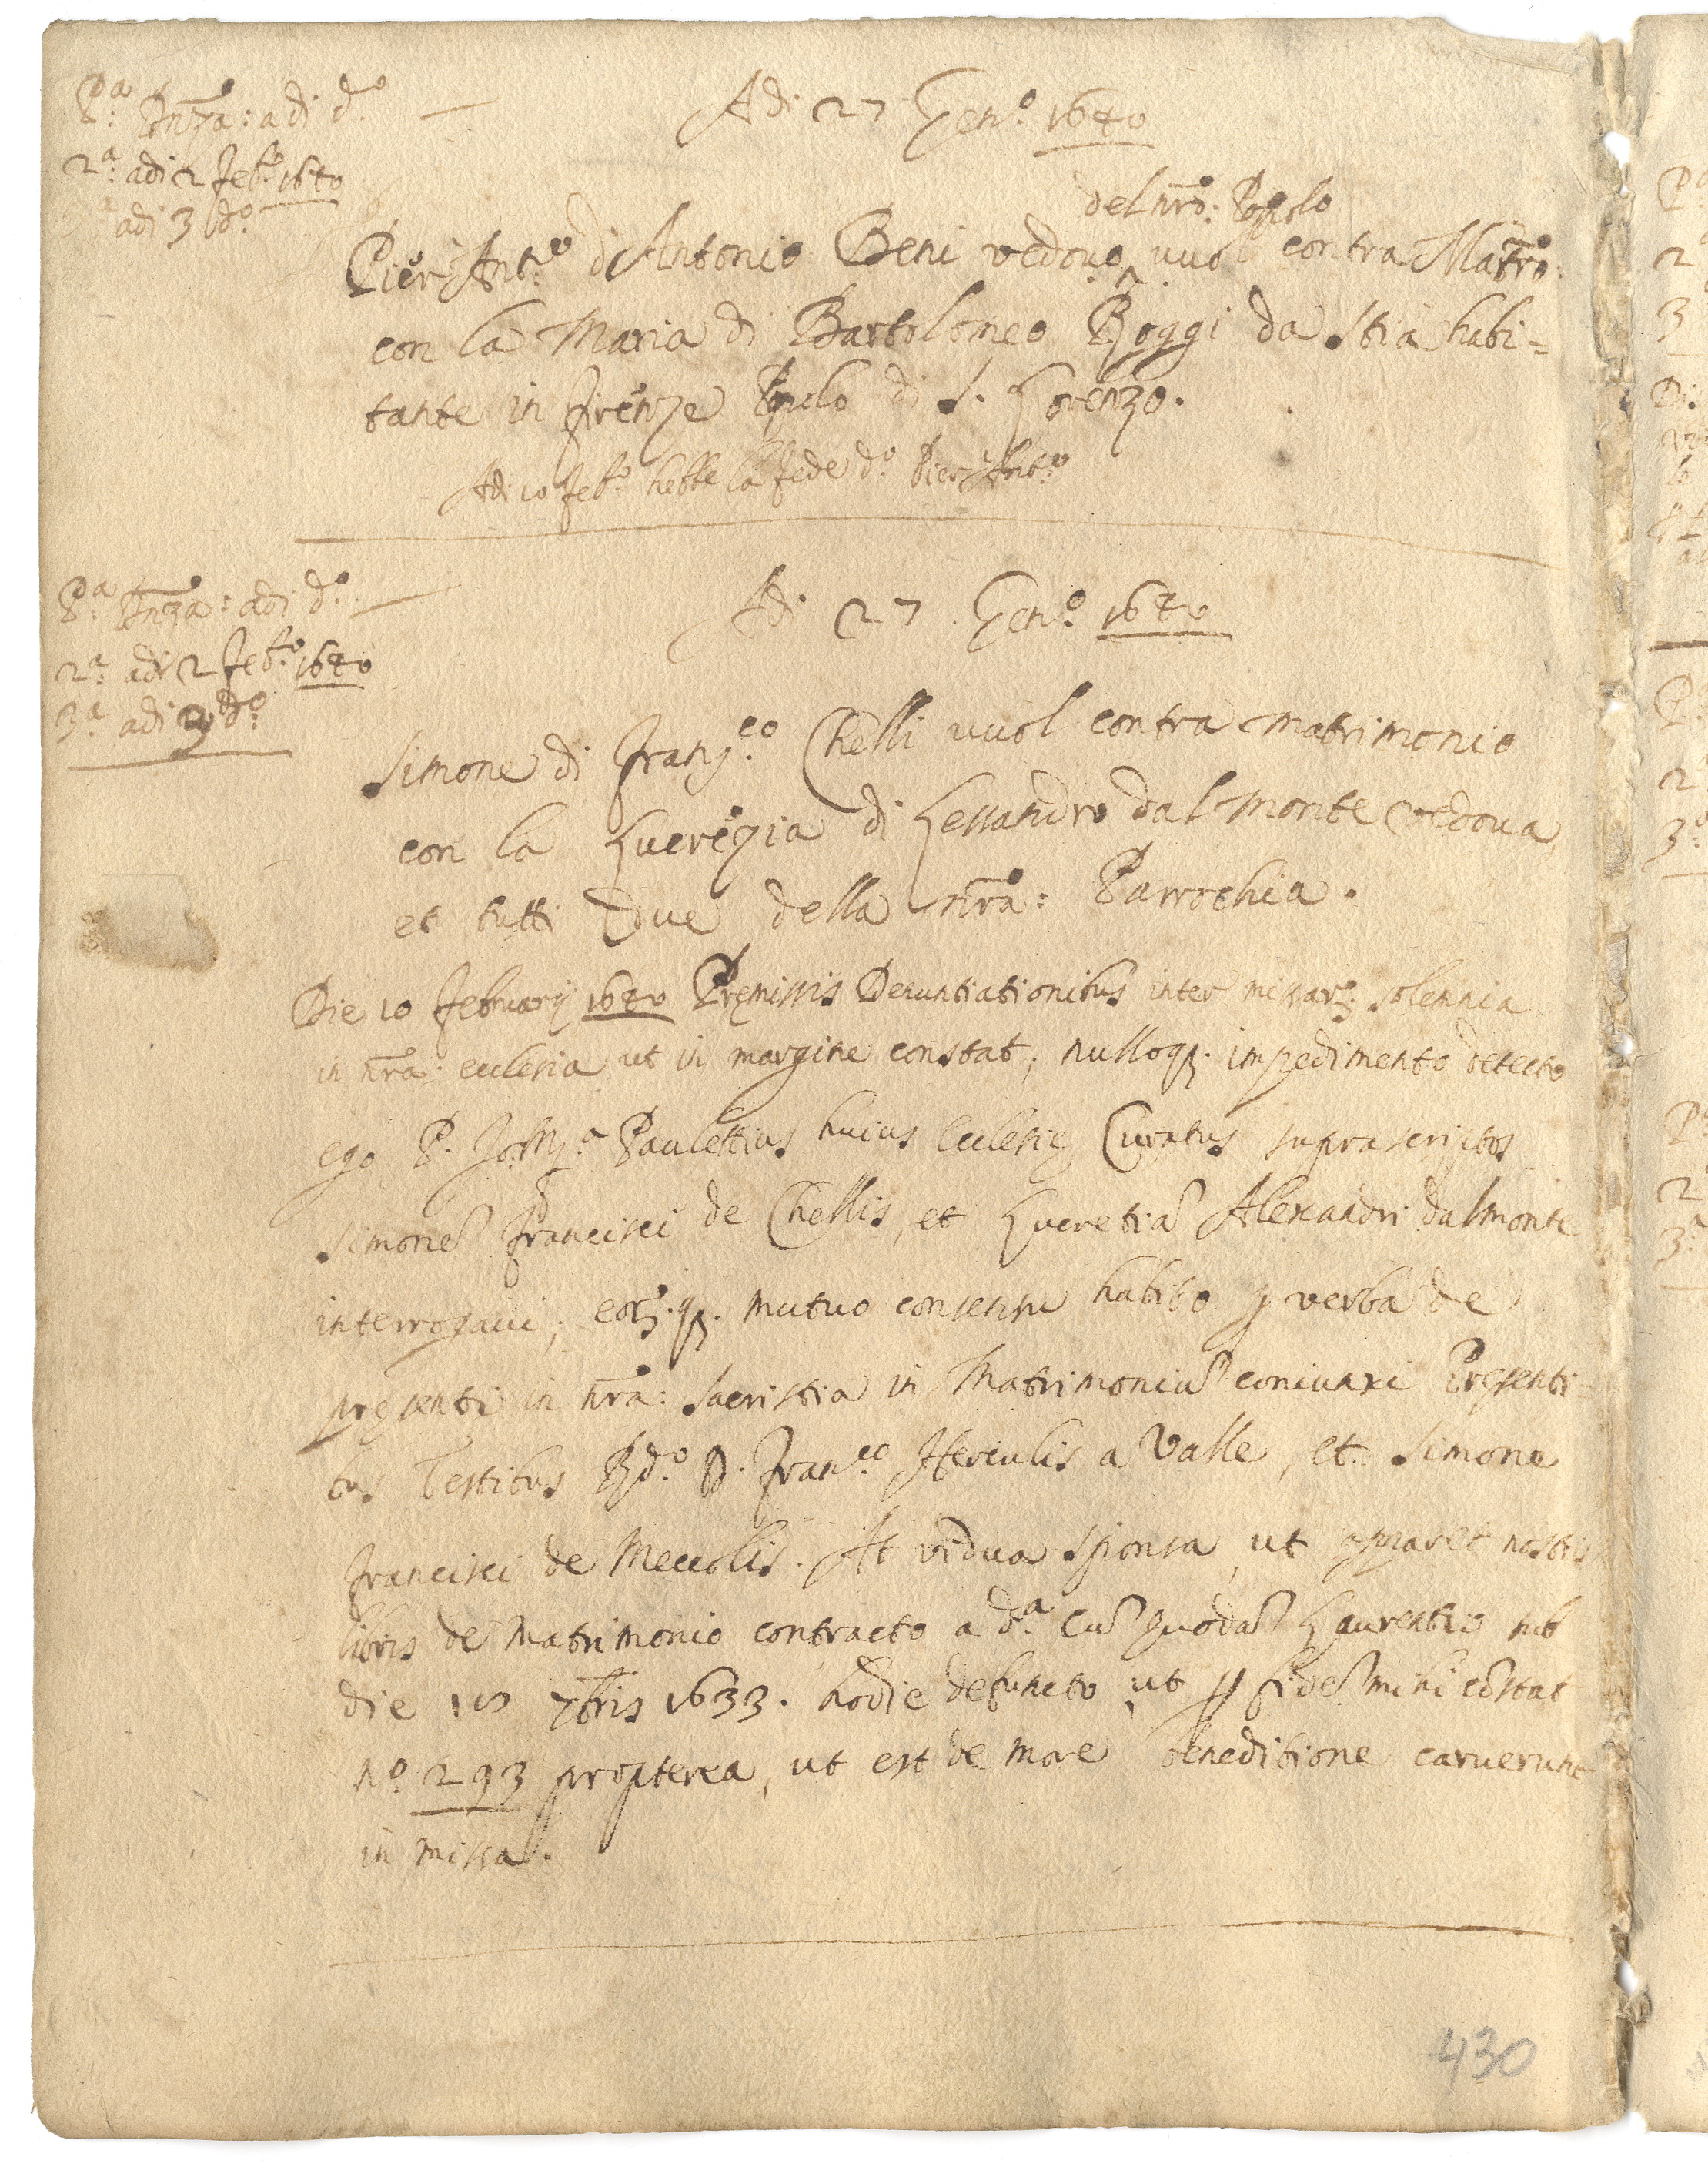 Pª: Dnza: adi dº
2ª: adi 2 Febº: 1640
3ª adi 3 dº:
Adi 27 Genº: 1640
del nrõ: Popolo
Pier Antº: di Antonio Beni vedovo vuol contra Matrõ:
con la Maria di Bartolomeo Roggi da Stia habi=
tante in Firenze Popolo di S. Lorenzo.
Adi 10 Febº: hebbe la fede dº: Pier Antº:
Pª: Dnza: adi dº:
2ª: adi 2 Febº: 1640
3ª adi 3 dº:
Adi 27 Genº: 1640
Simone di Francº: Chelli vuol contra Matrimonio
con la Lucrezia di Lessandro dal Monte vedova
et tutti due della nrã: Parrochia.
Die 10 Februarij 1640 Premissis Denuntiationibus inter missarꝫ: solennia
in nrã: ecclesia ut in margine constat; nulloqꝫ. impedimento detecto
ego P. Paulettius huius Ecclesię Curatus suprascriptos
Simonē Francisci de Chellis, et Lucretiā Alexandri dal Monte
interrogavi; eorꝫ.qꝫ. mutuo consensu habito ꝑ verba de
pręsenti in nrã: Sacristia in Matrimoniū coniunxi Pręsenti=
bus Testibus Rdº: D. Francº: Herculis a Valle, et Simone
Francisci de Meccolis. At vidua sponsa, ut apparet nostris
libris de Matrimonio contracto a dª: cū quodā Laurentio sub
die 7bris 1633. hodie defuncto, ut ꝑ fidē mihi cōstat
nº 293 propterea, ut est de more beneditione caruerunt
in missa.
430